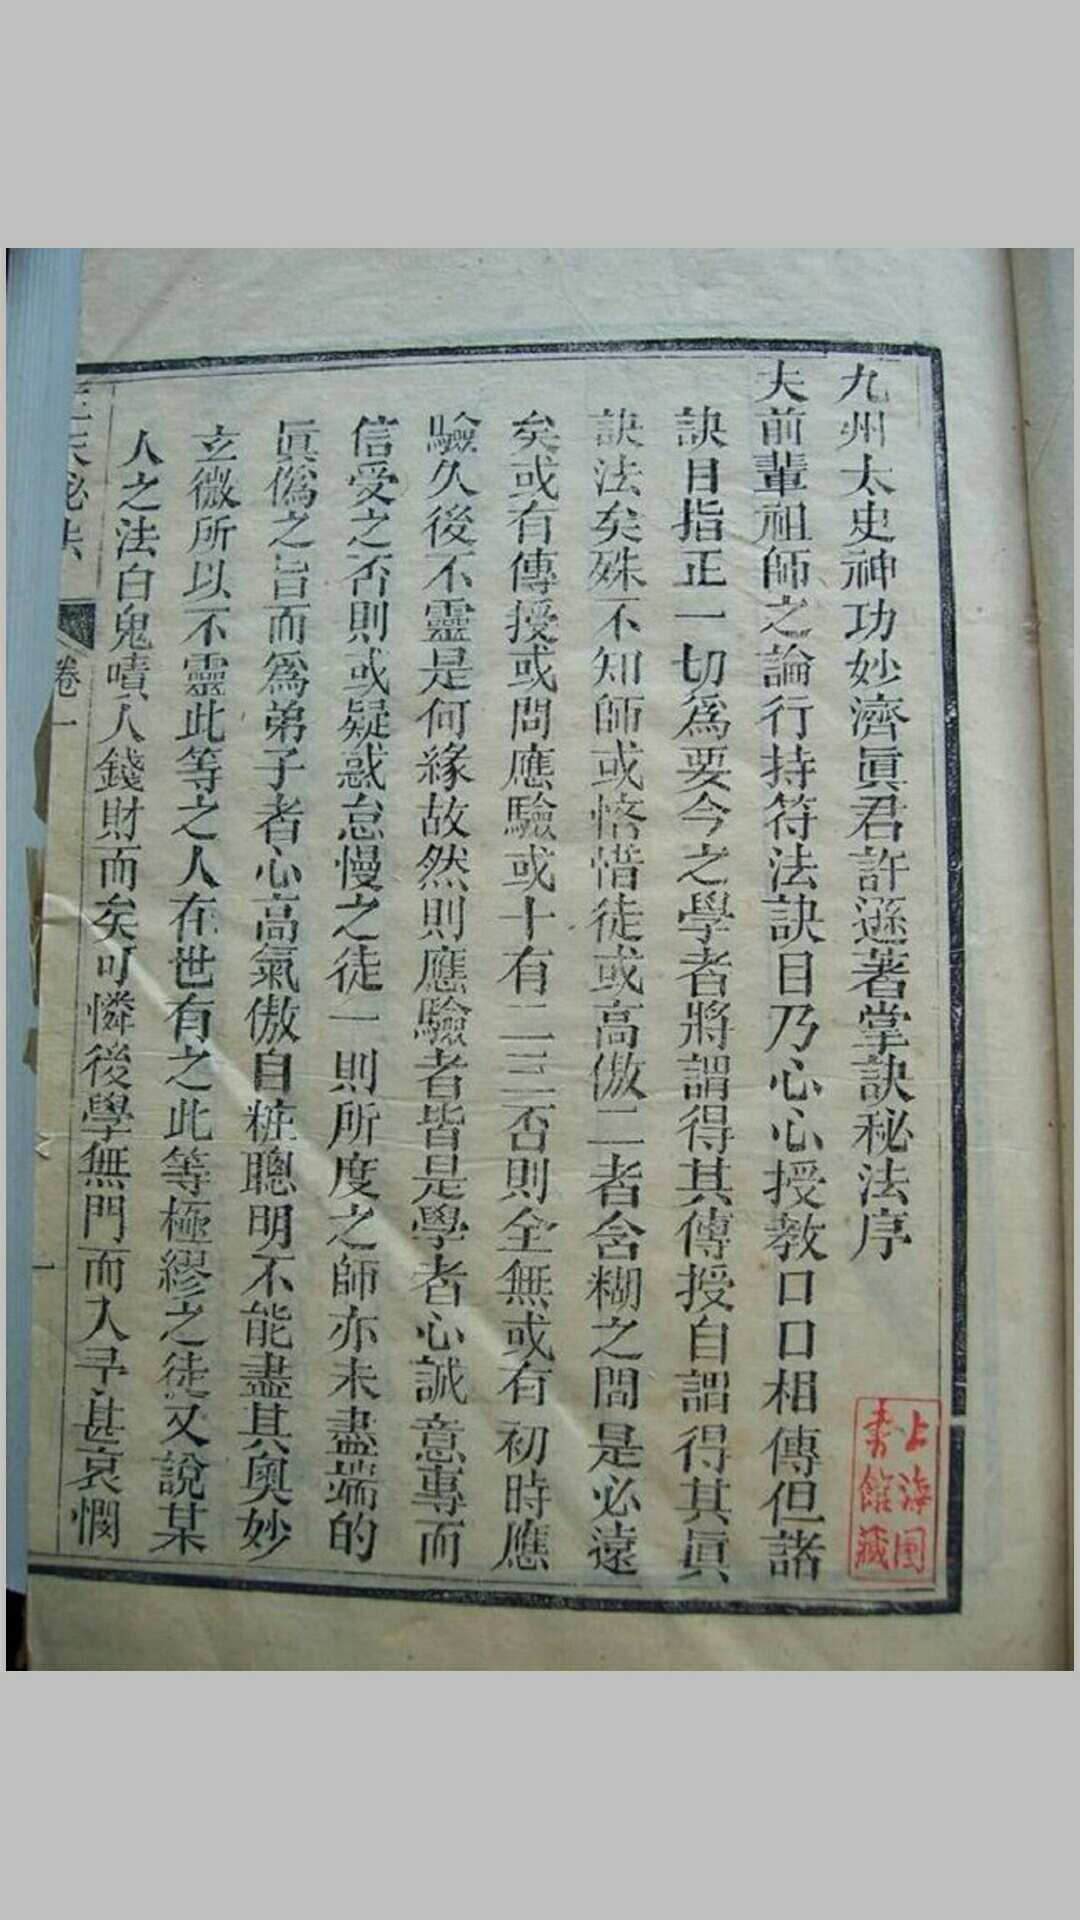 九州太史神功妙濟眞君許遜著掌訣秘法序
夫前輩祖師之論行持符法訣目乃心心授教口口相傳但諸
訣目指正一切爲要今之學者將謂得其傳授自謂得其眞
訣法矣殊不知師或悋惜徒或高傲二者含糊之間是必遠
矣或有傳授或問應驗或十有二三否則全無或有初時應
驗久後不靈是何緣故然則應驗者皆是學者心誠意專而
信受之否則或疑惑怠慢之徒一則所度之師亦未盡端的
眞僞之旨而爲弟子者心高氣傲自粧聰明不能盡其奧妙
玄微所以不靈此等之人在世有之此等極繆之徒又說某
人之法白鬼嘖人錢財而矣可憐後學無門而入予甚哀憫
天秘法
卷一
一
上海圖
書館藏